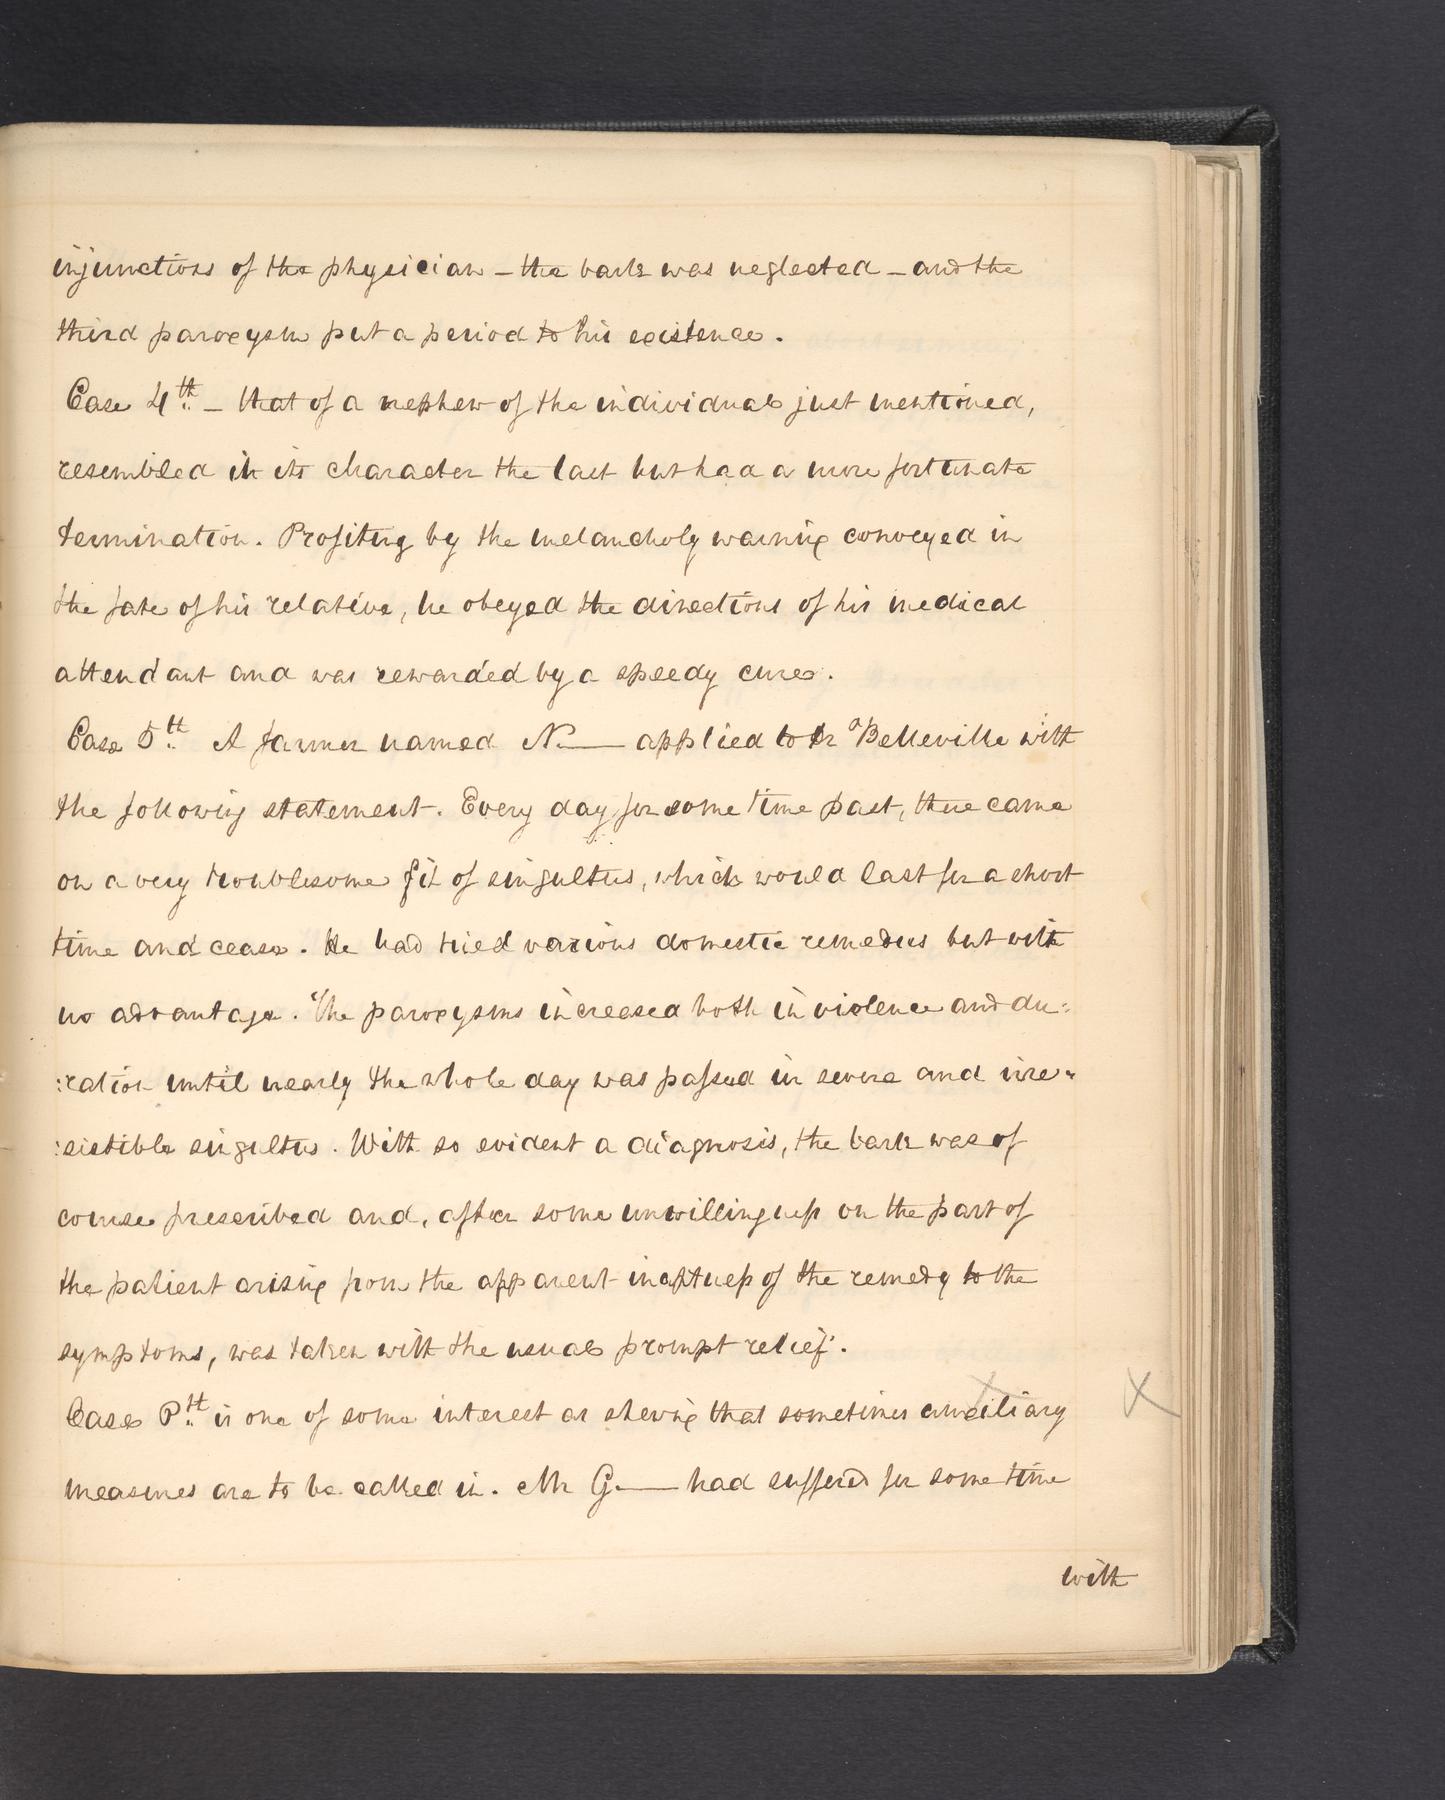 injunctions of the physician – the bark was neglected – and the
third paroxysm put a period to his existence.
Case 4th – that of a nephew of the individual just mentioned,
resembled in its character the last but had a more fortunate
termination. Profiting by the melancholy warning conveyed in
the fate of his relative, he obeyed the directions of his medical
attendant and was rewarded by a speedy cure.
Case 5th A farmer named N— applied to Dr Belleville with
the following statement. Every day for some time past, there came
on a very troublesome fit of singultus, which would last for a short
time and cease. He had tried various domestic remedies but with
no advantage. The paroxysms increased both in violence and du:
:ration until nearly the whole day was passed in severe and irre:
:sistible singultus. With so evident a diagnosis, the bark was of
course prescribed and, after some unwillingness on the part of
the patient arising from the apparent inaptness of the remedy to the
symptoms, was taken with the usual prompt relief.
Case th is one of some interest as shewing that sometimes auxiliary X
measures are to be called in. Mr G— had suffered for some time
with